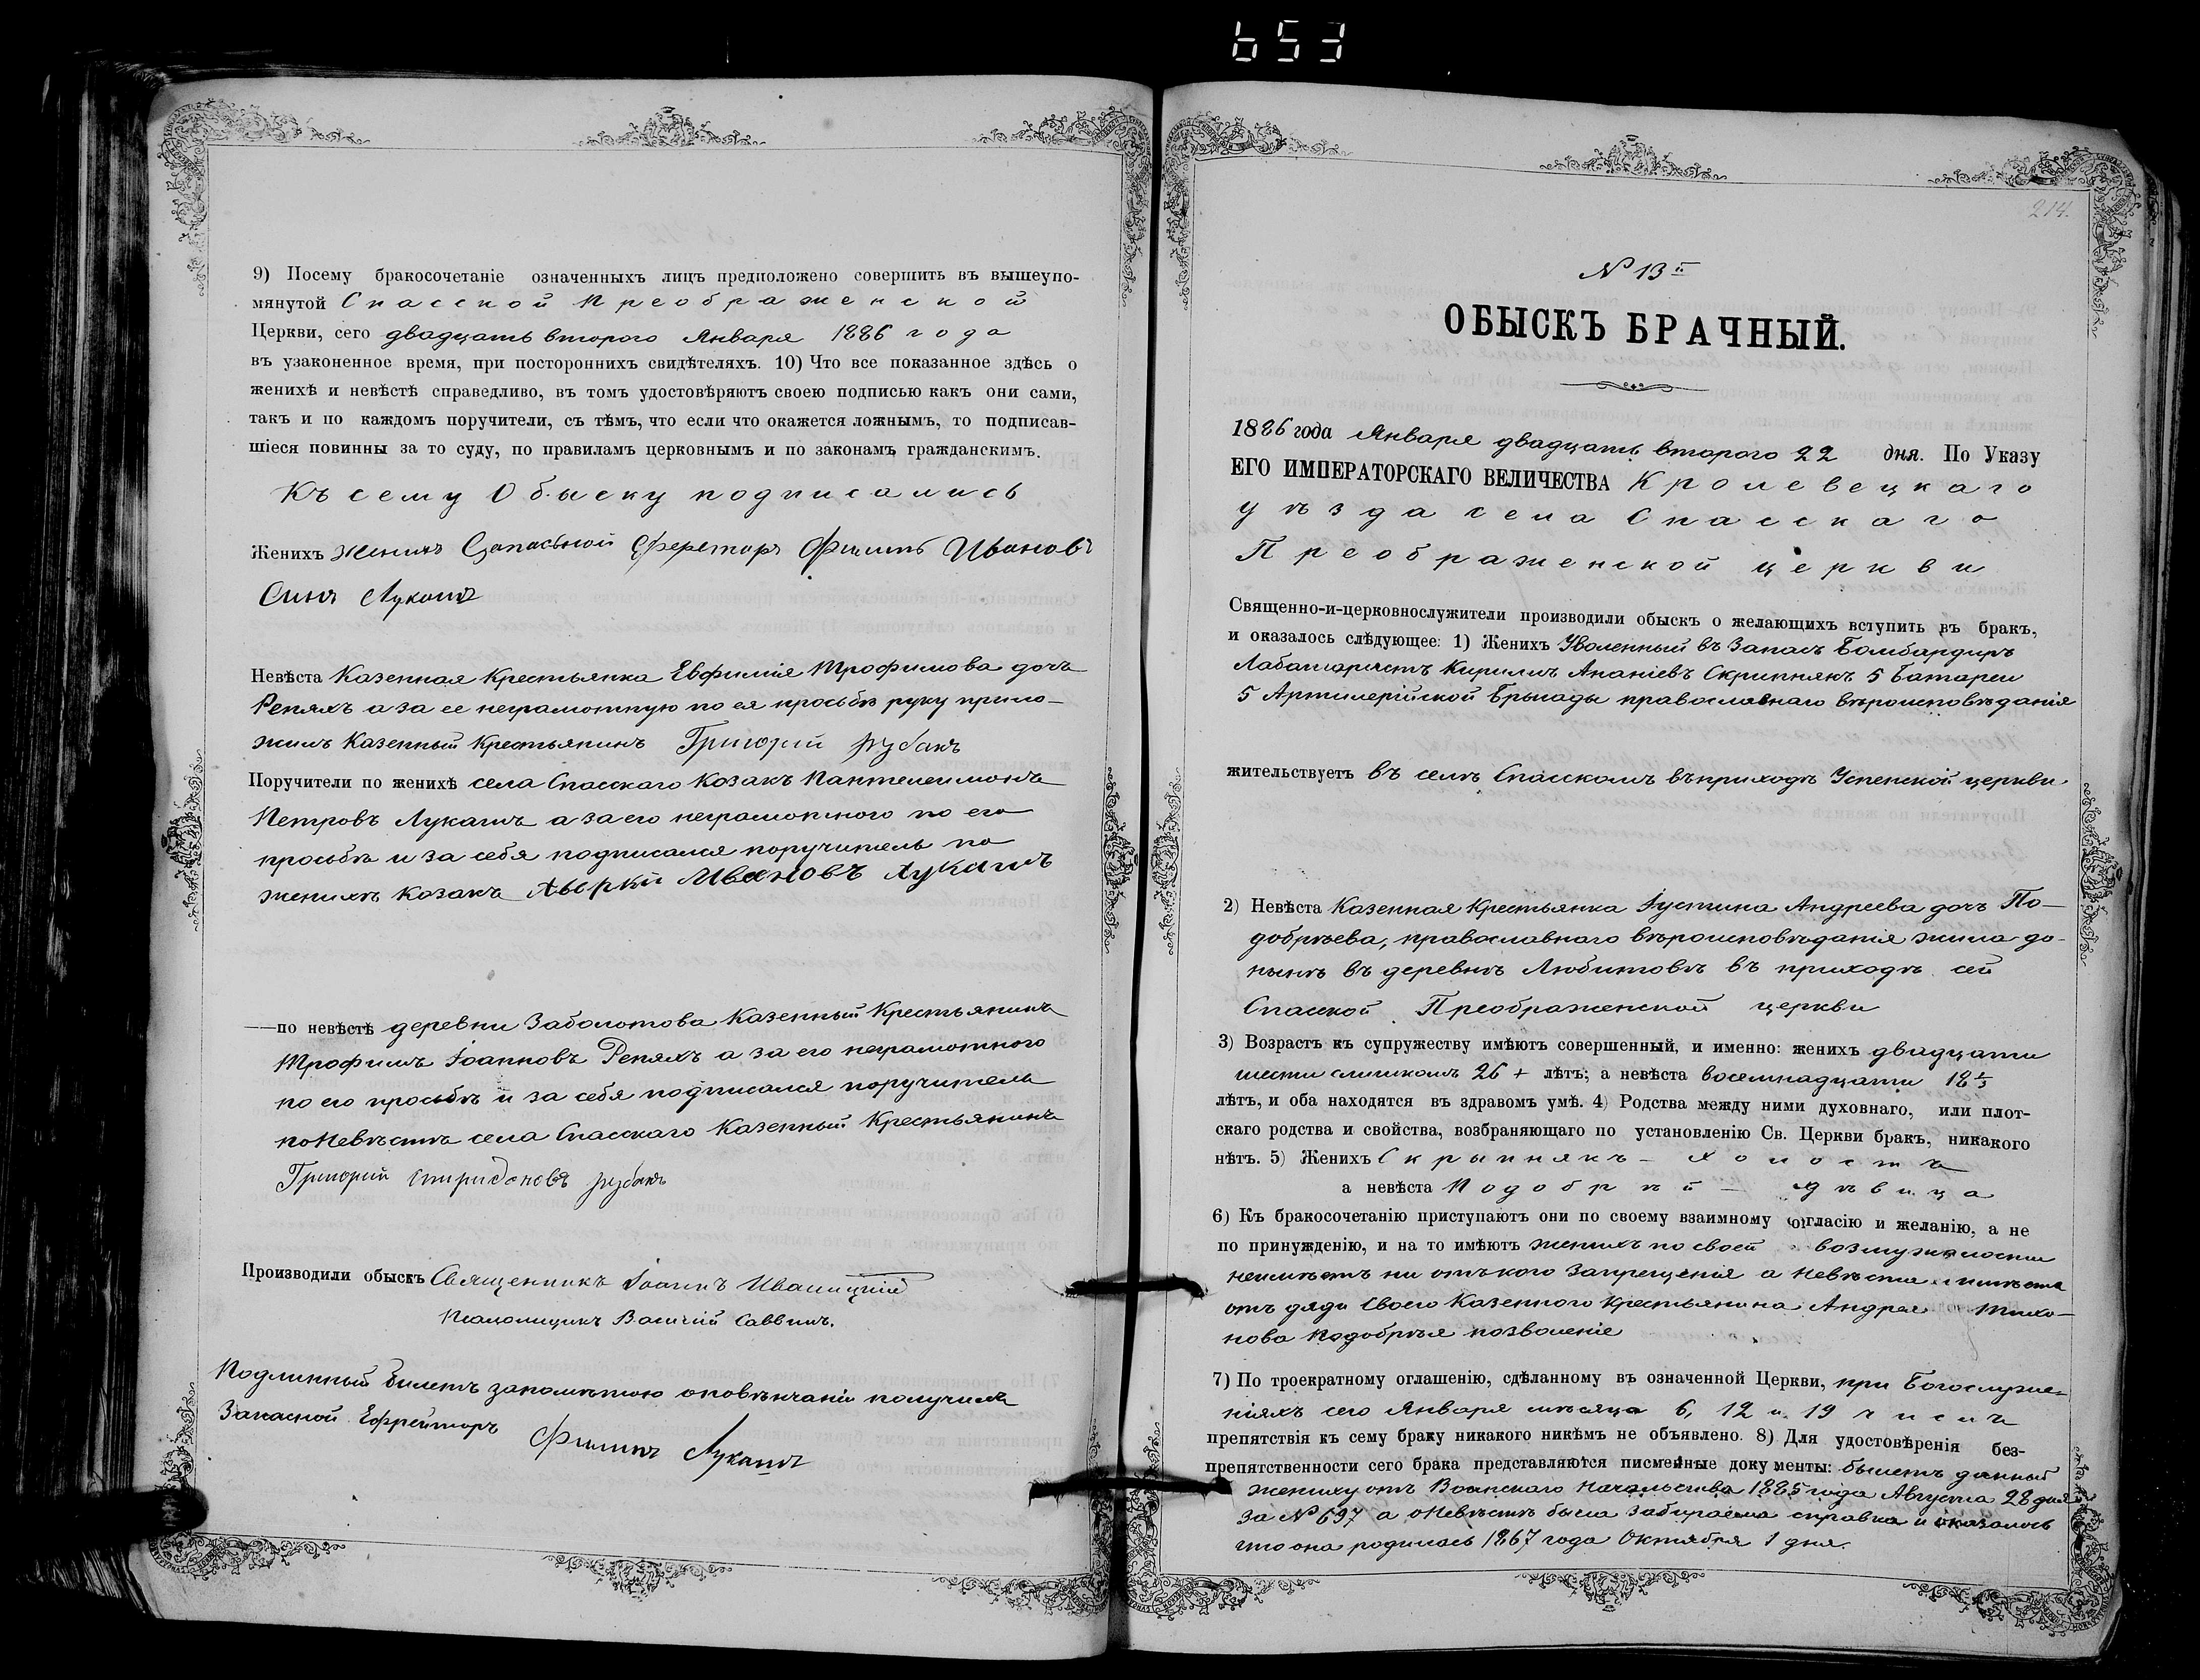 653
9) Посему бракосочетаніе означенныхъ лицъ предположено совершить въ вышеупо-
мянутой Спасской Преображенской
Церкви, сего двадцать второго Января 1886 года
въ узаконенное время, при постороннихъ свидѣтеляхъ. 10) Что все показанное здѣсь о
женихѣ и невѣстѣ справедливо, въ томъ удостовѣряютъ своею подписью какъ они сами,
такъ и по каждомъ поручители, съ тѣмъ, что если что окажется ложнымъ, то подписав-
шіеся повинны за то суду, по правиламъ церковнымъ и по законамъ гражданскимъ.
Къ сему Обыску подписались
Женихъ жених Филипъ Ивановъ
Синъ Лукашъ
Невѣста Казенная Крестьянка Евфимія Трофимова дочь
Репяхъ а за ее неграмотную по ея просьбѣ руку прило-
жилъ Казенный Крестьянинъ Григорій рубанъ
Поручители по женихѣ села Спасскаго Козакъ Пантелеимонъ
Петровъ Лукашъ а за его неграмотного по его
просьбѣ и за себя подписался поручитель по
женихѣ козакъ Аверкій Ивановъ Лукашъ
—по невѣстѣ деревни Заболотова Казенный Крестьянинъ
Трофимъ Іоанновъ Репяхъ а за его неграмотного
по его просьбѣ и за себя подписался поручитель
по Невѣстѣ села Спасскаго Казенный Крестьянинъ
Григорій спиридоновъ рубанъ
Производили обыскъ Священникъ Іоаннъ Иваницкій
Псаломщикъ Василій Саввичъ.
Подлинный билетъ запомѣтою оповѣнчаніи получилъ
Запасной Ефрейторъ Филипъ Лукашъ
214.
№ 13й
ОБЫСКЪ БРАЧНЫЙ.
1886 года Января двадцать второго 22 дня. По Указу
ЕГО ИМПЕРАТОРСКАГО ВЕЛИЧЕСТВА Кролевецкаго
уѣзда села Спасскаго
Преображенской церкви
Священно-и-церковнослужители производили обыскъ о желающихъ вступить въ бракъ,
и оказалось слѣдующее: 1) Женихъ Уволенный въ Запасъ Бомбардиръ
Лабатаристъ Кириллъ Ананіевъ Скрипнякъ 5 Батареи
5 Артилерійской Брыгады православнаго вѣроисповѣданія
жительствуетъ въ селѣ Спасскомъ въ приходѣ Успенской церкви
2) Невѣста Казенная Крестьянка Іустина Андреева дочь По-
добрѣева, православнаго вѣроисповѣданія жила до-
нынѣ въ деревнѣ Любитовѣ въ приходѣ сей
Спасской Преображенской церкви
3) Возрастъ къ супружеству имѣютъ совершенный, и именно: женихъ двадцати
шести слишкомъ 26 + лѣтъ; а невѣста восемнадцати 18 1/3
лѣтъ, и оба находятся въ здравомъ умѣ. 4) Родства между ними духовнаго, или плот-
скаго родства и свойства, возбраняющаго по установленію Св. Церкви бракъ, никакого
нѣтъ. 5) Женихъ Скрыпнякъ — холостъ
а невѣста Подобрѣй — дѣвица
6) Къ бракосочетанію приступаютъ они по своему взаимному согласію и желанію, а не
по принужденію, и на то имѣютъ женихъ по своей возмужалости
неимѣетъ ни отъкого Запрещенія а Невѣста имѣетъ
отъ дяди Своего Казенного Крестьянина Андрея Тихо-
нова Подобрѣя позволеніе
7) По троекратному оглашенію, сдѣланному въ означенной Церкви, при Богослуже-
ніяхъ сего Января мѣсяца 6, 12 и 19 числъ
препятствія къ сему браку никакого никѣмъ не объявлено. 8) Для удостовѣренія без-
препятственности сего брака представляются писменные документы: билетъ данный
жениху отъ Воинскаго Начальства 1885 года Августа 28 дня
за № 697 а о Невѣстѣ была забираема справка и оказалось
что она родилась 1867 года Октября 1 дня.